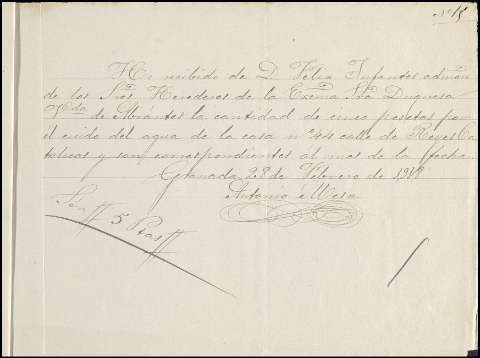 Nº 15
He recibido de D. Felix Infantes admon
de los Sres Herederos de la Excma Sra Duquesa
Vda de Abrantes la cantidad de cinco pesetas por
el cuido del agua de la casa nº 44 calle de Reyes Ca
tolicos y son correspondientes al mes de la fecha.
Granada 28 de Febrero de
Antonio Mesa
Son 5 Ptas